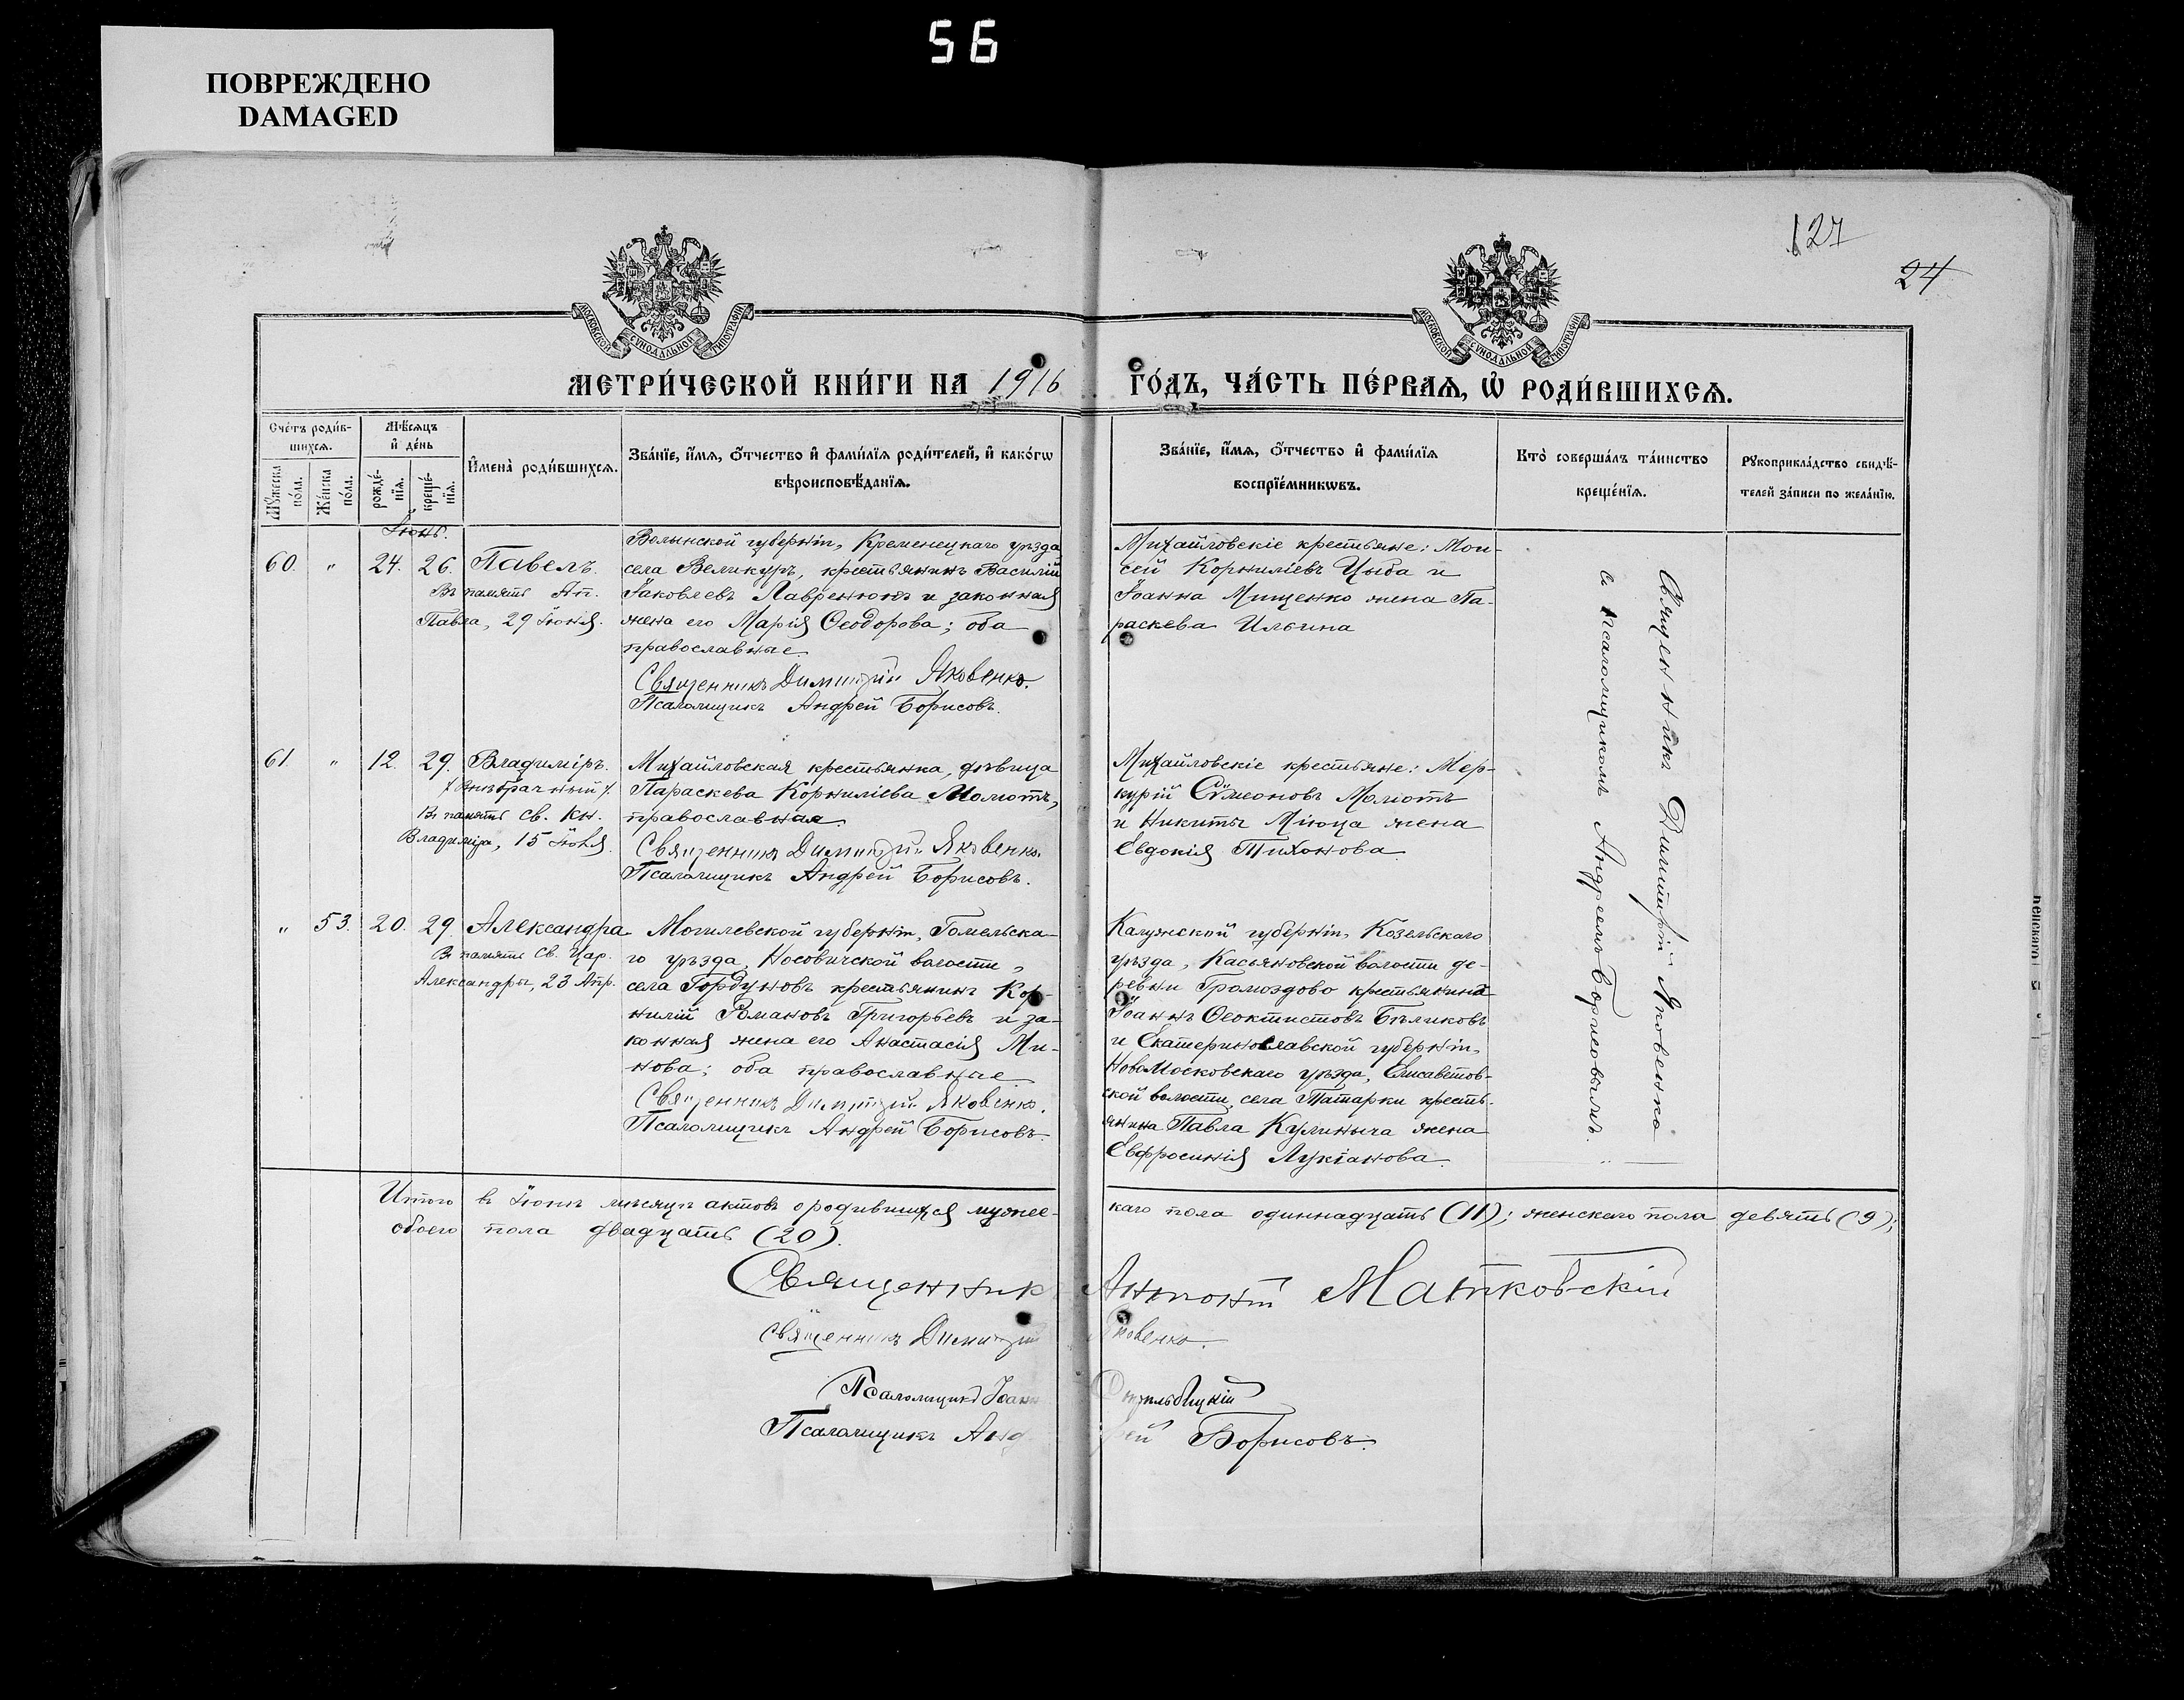 56
ПОВРЕЖДЕНО
DAMAGED
127
24
МОСКОВСКОЙ СѴНОДАЛЬНОЙ ТИПОГРАФІИ
МОСКОВСКОЙ СѴНОДАЛЬНОЙ ТИПОГРАФІИ
МЕТРИ́ЧЕСКОЙ КНИ́ГИ НА 1916 ГО́ДЪ, ЧА́СТЬ ПЕ́РВАѦ, Ѡ РОДИ́ВШИХСѦ.
Сче́тъ роди́в-
шихсѧ.
Мꙋ́жеска по́ла.
Же́нска по́ла.
Мѣ́сѧцъ
и҆ де́нь
рожде́-
нїѧ.
креще́-
нїѧ.
И҆мена̀ роди́вшихсѧ.
Зва́нїе, и҆́мѧ, ѻ҆́тчество и҆ фами́лїѧ роди́телей, и҆ како́гѡ
вѣроисповѣ́данїѧ.
Зва́нїе, и҆́мѧ, ѻ҆́тчество и҆ фами́лїѧ
воспрїе́мникѡвъ.
Кто̀ соверша́лъ та́инство
креще́нїѧ.
Рꙋкоприкла́дство свидѣ́-
телей за́писи по жела́нїю.
Іюнь.
60. " 24. 26. Павелъ.
Въ память Ап.
Павла, 29 Іюня.
Волынской губерніи, Кременецкаго уѣзда
села Великуръ, крестьянинъ Василій
Іаковлевъ Лавренюкъ и законная
жена его Марія Ѳеодорова; оба
православные.
Священникъ Димитрій Яковенко.
Псаломщикъ Андрей Борисовъ.
Михайловскіе крестьяне: Мои-
сей Корниліевъ Цыба и
Іоанна Мищенко жена Па-
раскева Ильина
Священникъ Димитрій Яковенко
съ псаломщикомъ Андреемъ Борисовымъ.
61 " 12. 29. Владиміръ.
/внѣбрачный/.
Въ память св. Кн.
Владиміра, 15 Іюля.
Михайловская крестьянка, дѣвица
Параскева Корниліева Молотъ,
православная.
Священникъ Димитрій Яковенко.
Псаломщикъ Андрей Борисовъ.
Михайловскіе крестьяне: Мер-
курій Сѵмеоновъ Молотъ
и Никиты Міюца жена
Евдокія Тихонова.
" 53. 20. 29. Александра
Въ память Св. Цар.
Александры, 23 Апр.
Могилевской губерніи, Гомельска-
го уѣзда, Носовичской волости,
села Гордуновъ крестьянинъ Кор-
нилій Романовъ Григорьевъ и за-
конная жена его Анастасія Ми-
нова; оба православные
Священникъ Димитрій Яковенко.
Псаломщикъ Андрей Борисовъ.
Калужской губерніи, Козельскаго
уѣзда, Касьяновской волости де-
ревни Громоздово крестьянинъ
Іоаннъ Ѳеоктистовъ Бѣликовъ
и Екатеринославской губерніи,
Новомосковскаго уѣзда, Елисаветов-
ской волости, села Татарки кресть-
янина Павла Кулиныча жена
Евфросинія Лукіанова.
Итого въ Іюнѣ мѣсяцѣ актовъ о родившихся мужес-каго пола одиннадцать (11); женскаго пола девять (9);
обоего пола двадцать (20).
Священник Антоній Матковскій
Священникъ Димитрій Яковенко.
Псаломщикъ Іоанн
Псаломщикъ Андрей Борисовъ.